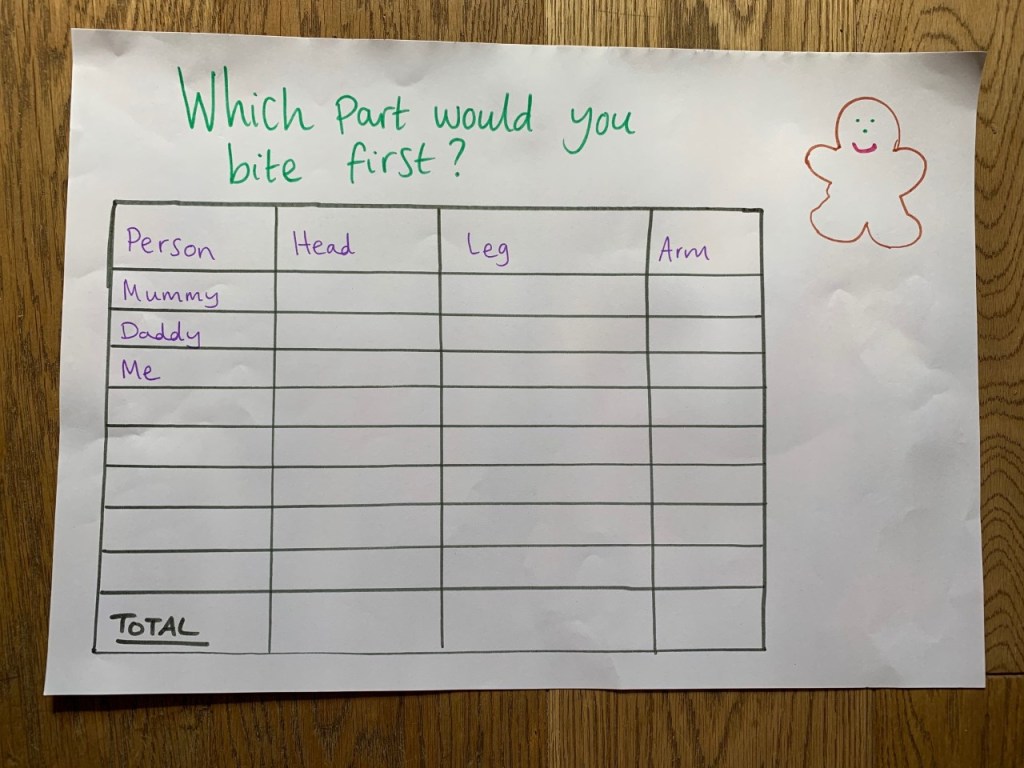 Which part would you
bite first?
Person Head Leg Arm
Mummy
Daddy
Me
TOTAL